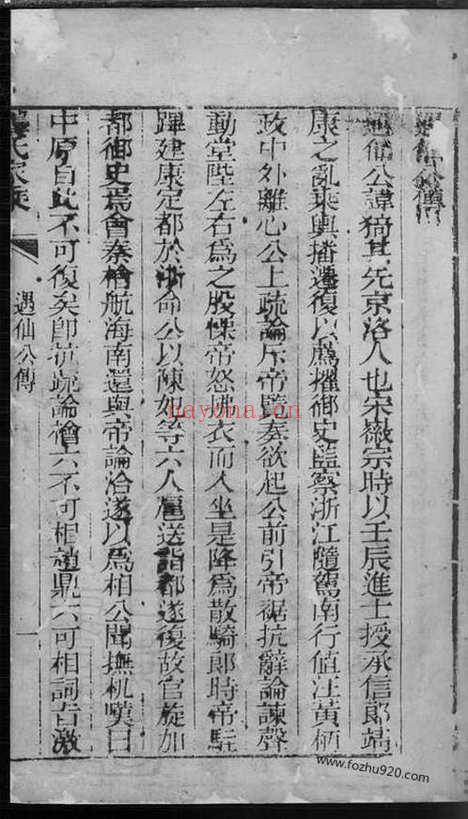 遇仙公傳
遇仙公諱猗其先京洛人也宋徽宗時以壬辰進士授承信郎靖
康之亂乘輿播遷復以薦擢御史監察浙江隨駕南行值汪黃柄
政中外離心公上疏論斥帝覽奏欲起公前引帝裾抗辭論諫聲
動堂陛左右為之股慄帝怒拂衣而入坐是降為散騎郎時帝駐
蹕建康定都於浙命公以陳妃等六人扈送詣都遂復故官旋加
都御史焉會秦檜航海南還與帝論洽遂以為相公聞撫机嘆曰
中原自此不可復矣卽抗疏論檜六不可相趙鼎六可相詞旨激
氏家乘
遇仙公傳
一
nayona.cn
www.fozhu920.com